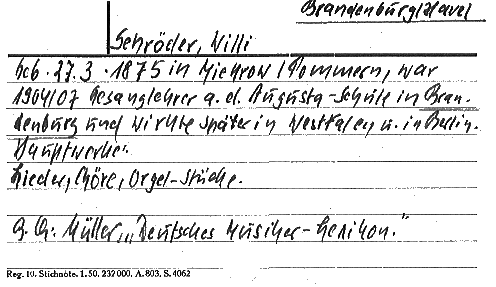 Brandenburg/Havel
Schröder, Willi
Geb. 27.3.1875 in Miehrow/Pommern, war
1904/07 Gesanglehrer a. d. Augusta-Schule in Bran-
denburg und wirkte später in Westfalen u. in Berlin.
Hauptwerke:
Lieder, Chöre, Orgel-Stücke.
Müller, „Deutsches Musiker-Lexikon."
Reg. 10. Stichnote. 1. 50. 232000. A. 803. S. 4062